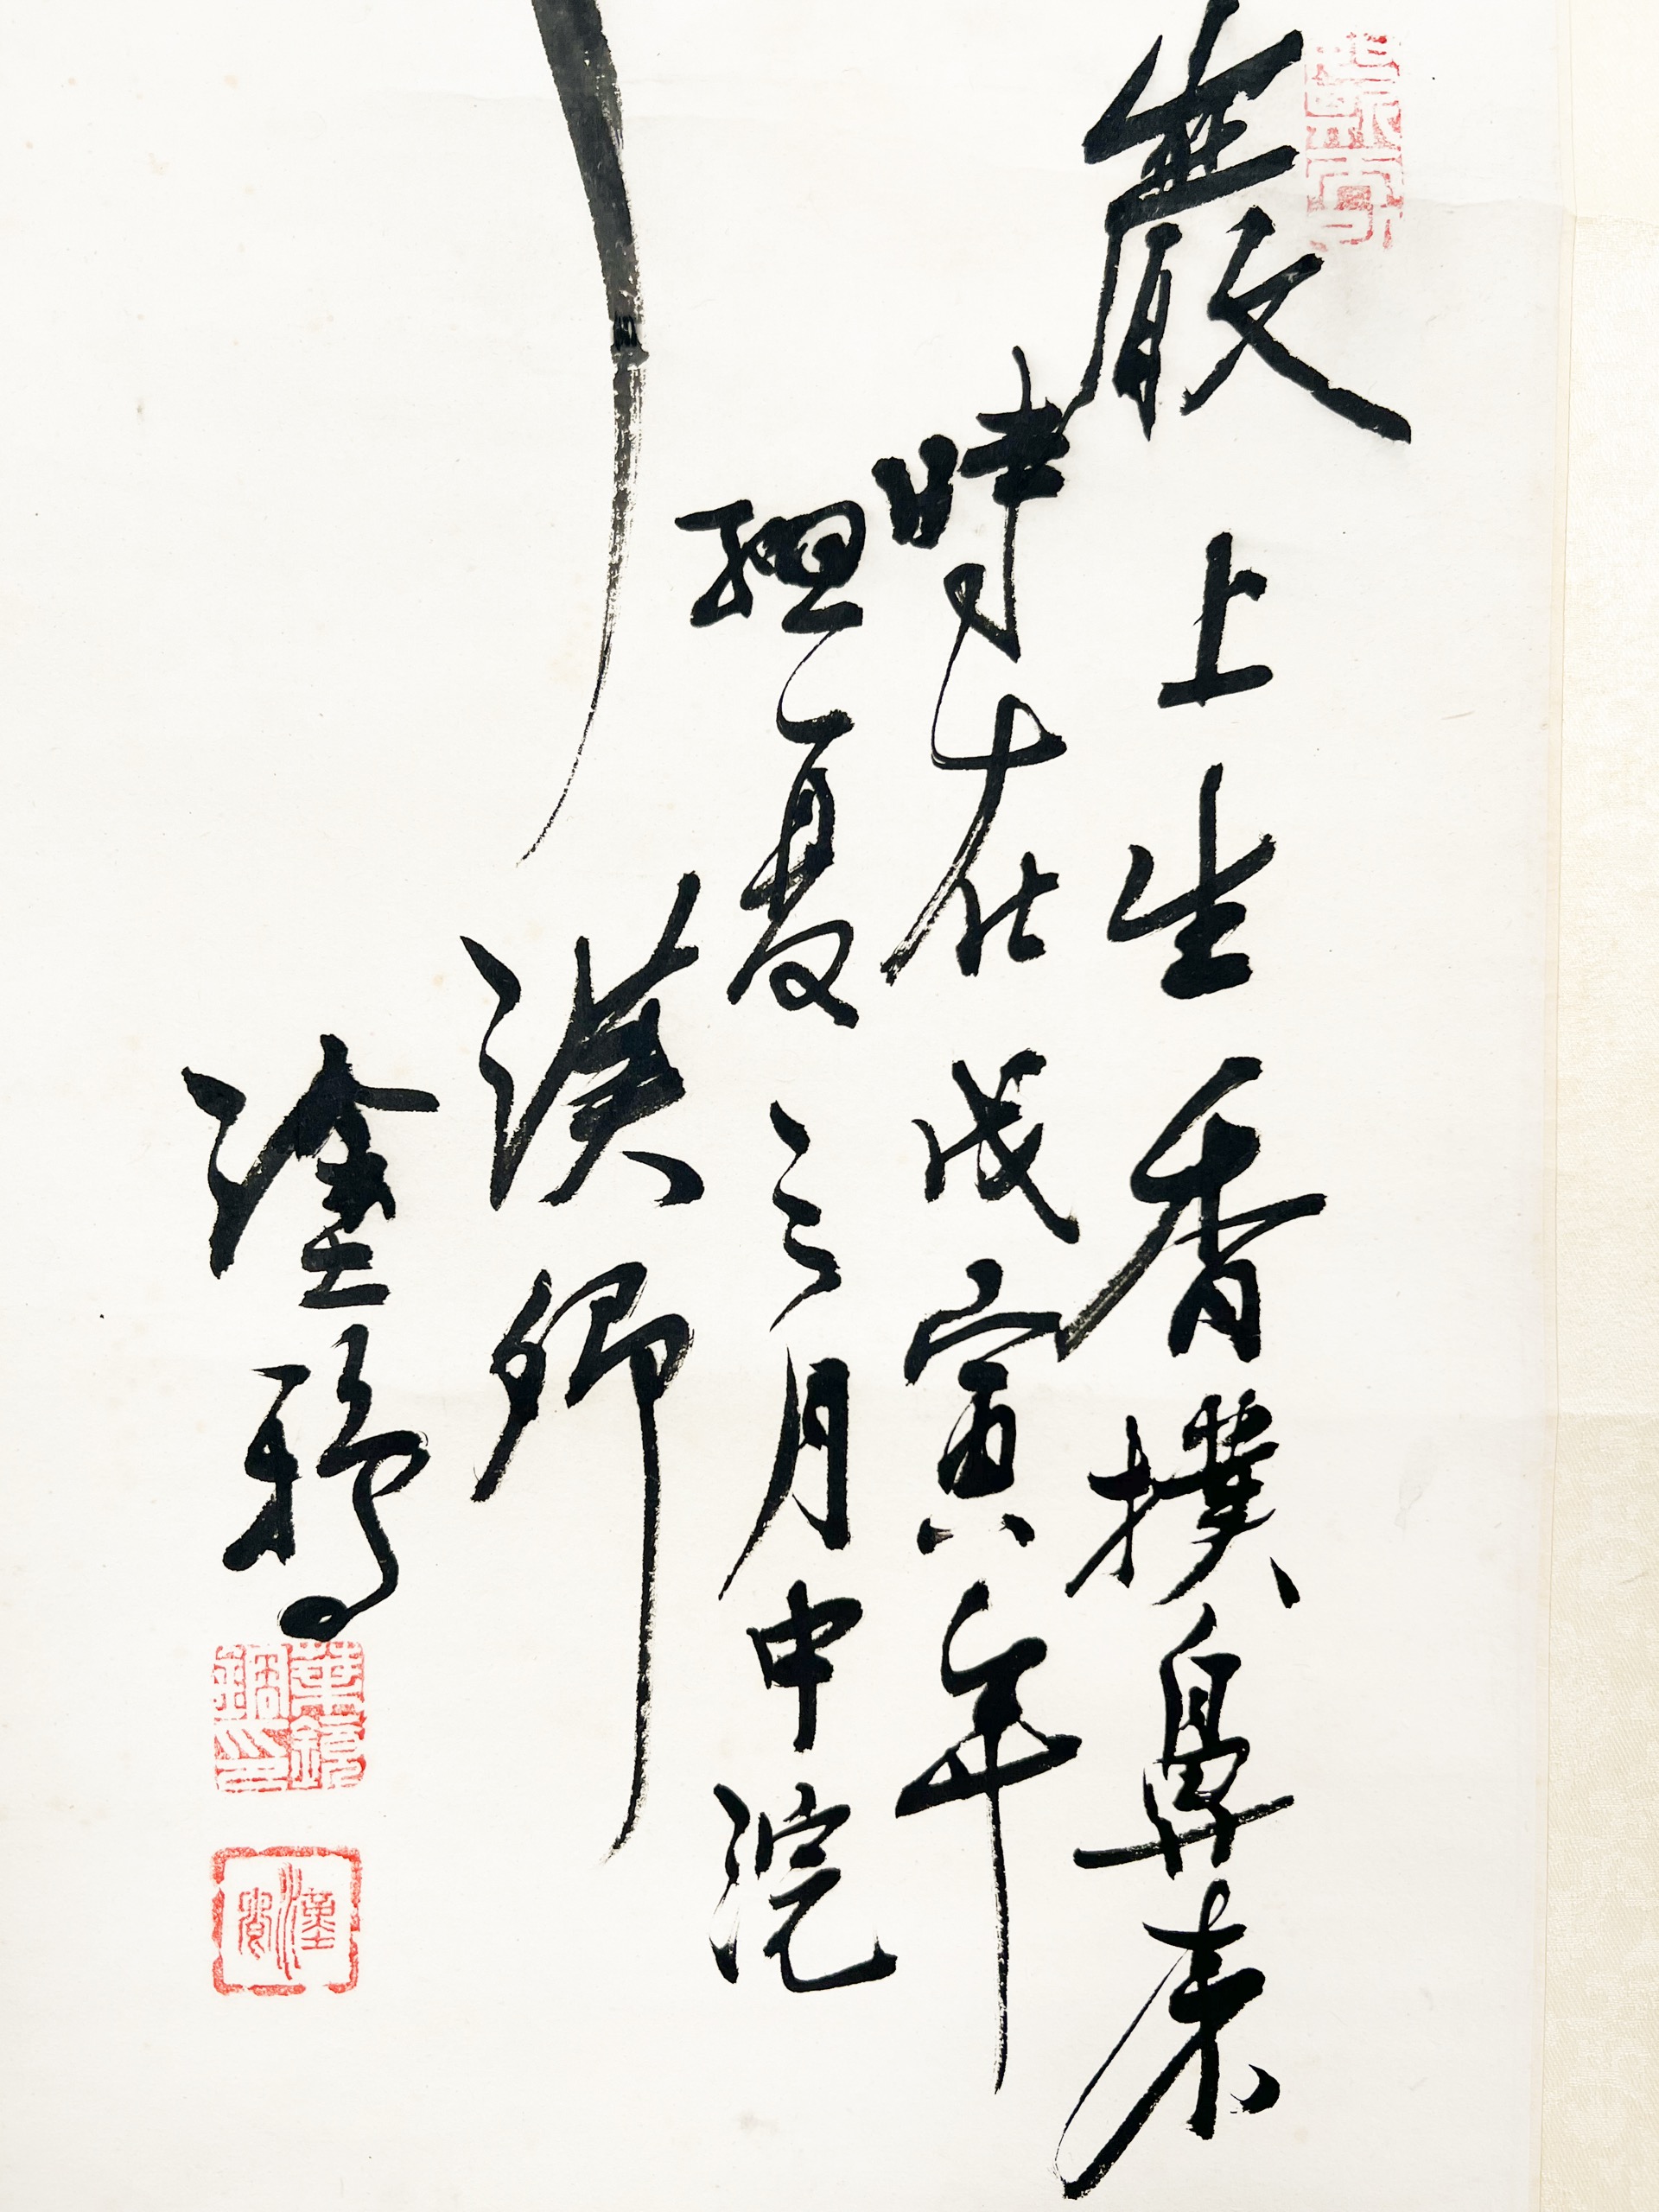 巖上生香撲鼻來
時在戊寅年
孟夏之月中浣
漢卿
塗鴉
漢卿